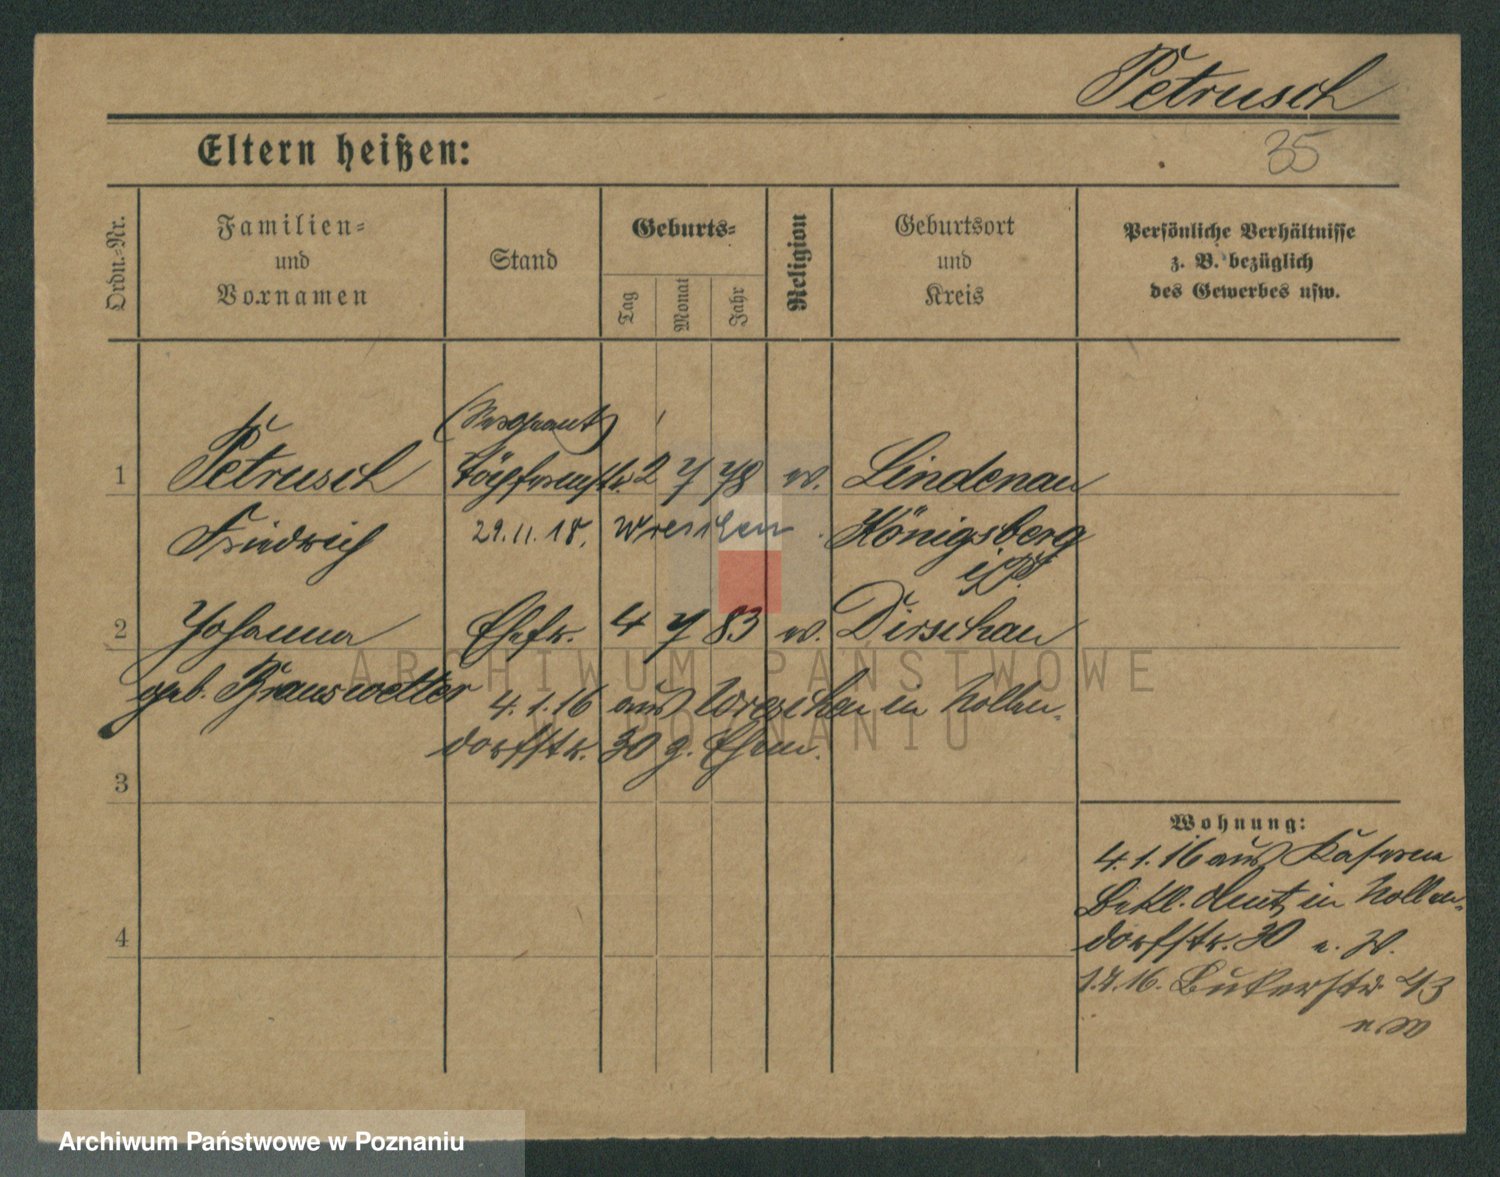 Petrusch
35
Eltern heißen:
Ordn.-Nr.
Familien-
und
Vornamen
Stand
Geburts-
Tag
Monat
Jahr
Religion
Geburtsort
und
Kreis
Persönliche Verhältnisse
z. B. bezüglich
des Gewerbes usw.
(Sergeant)
1 Petrusch 2 7 78 ev. Lindenau
Friedrich 29.11.18. Wreschen Königsberg
i/Pr.
2 Johanna Ehefr. 4 7 83 ev. Dirschau
geb. Brauswetter 4.1.16 aus Wreschen in Nollen-
dorfstr. 30 z. Ehem.
3
Wohnung:
4.1.16 aus Kaserne
Bekl. Amt in Nollen-
dorfstr. 30 n. W.
4
1.7.16. Bukerstr 43
n W
ARCHIWUM PAŃSTWOWE
W POZNANIU
Archiwum Państwowe w Poznaniu